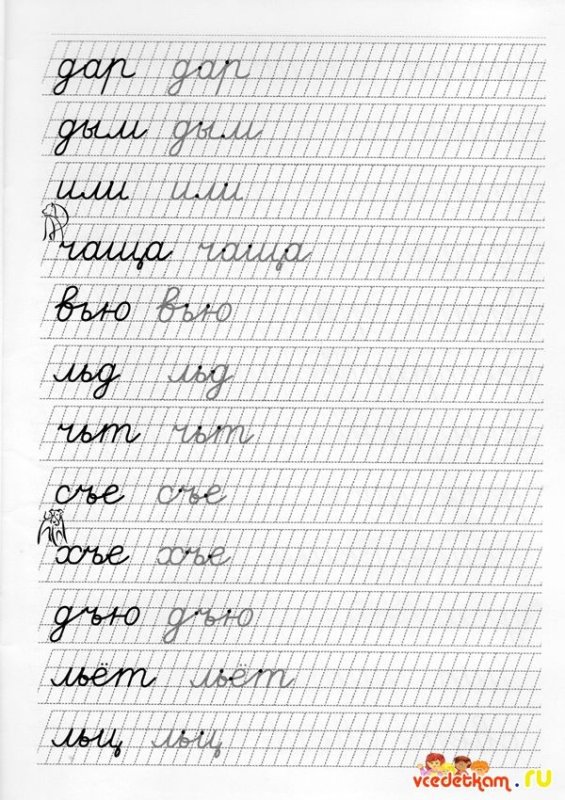 дар дар
дым дым
или или
чаща чаща
вью вью
льд льд
чьт чьт
съе съе
хъе хъе
дъю дъю
льёт льёт
льц льц
vcedetkam.ru